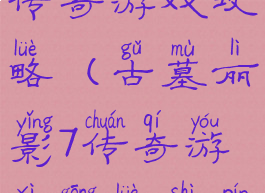 传奇游戏攻
lüè gǔ mù lì
略(古墓丽
yǐng chuán qí yóu
影7传奇游
xì gōng lüè shì pín